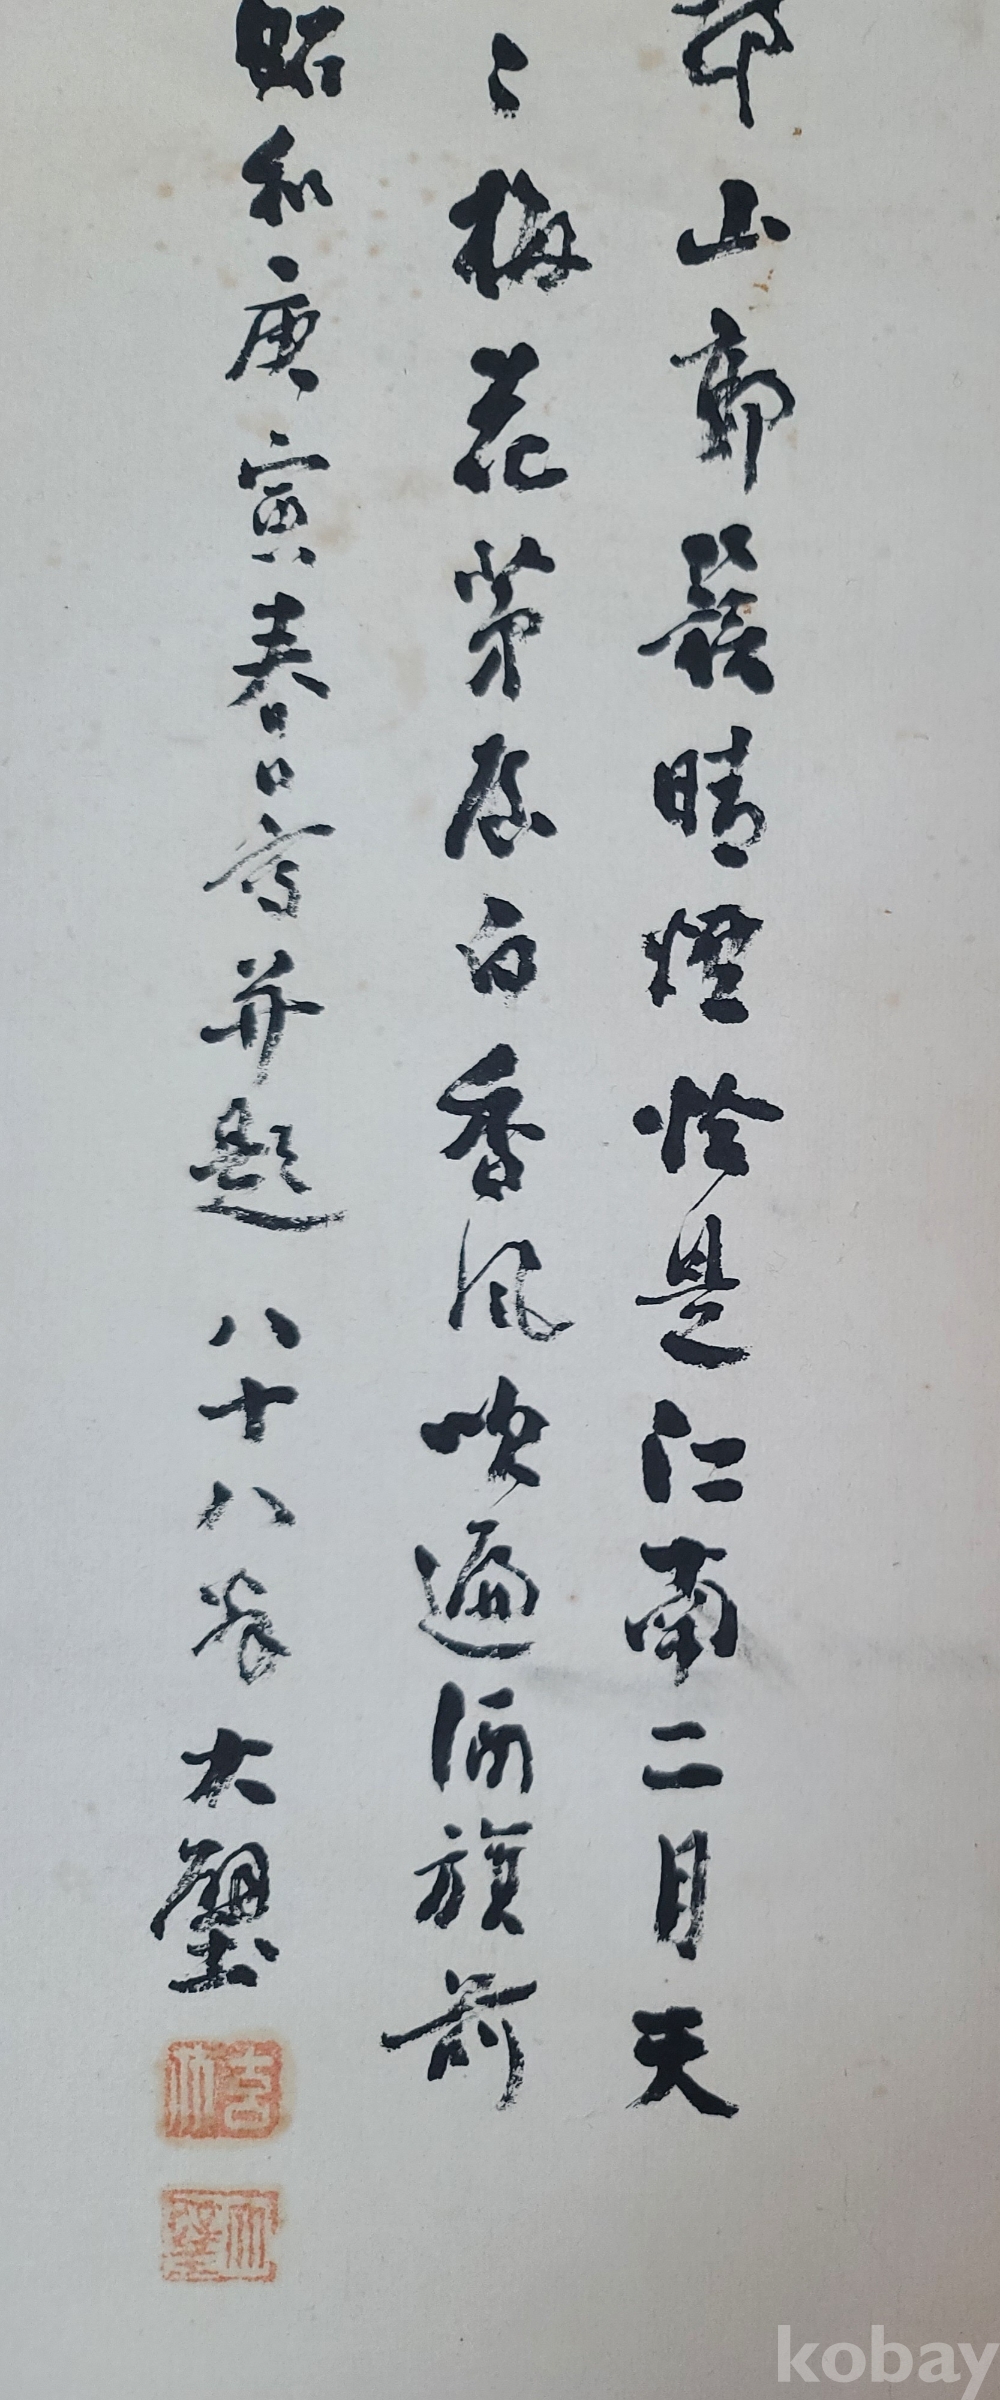 山郭籏晴煙恰是江南二月天
〻梅花茅屋白香風吹遍酒旗前
昭和庚寅春日写并題 八十八翁 大壑
kobay